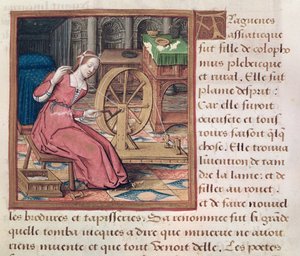 ARagnenes
asiaticque
fut fille de colopho
mus plebeique
et rural. Elle fut
plaine desprit:
Car elle fuyoit
oeuseuete et tous
iours faisoit qlq
chose. Elle trouua
luention de tain
dre la laine: et de
filler au rouet:
et de faire nouuel
les brodures et tapisseries. Sa renommee fut si grande
quelle tomba iucques a dire que minerue ne auoit
riens inuente et que tout venoit delle. Les poetes